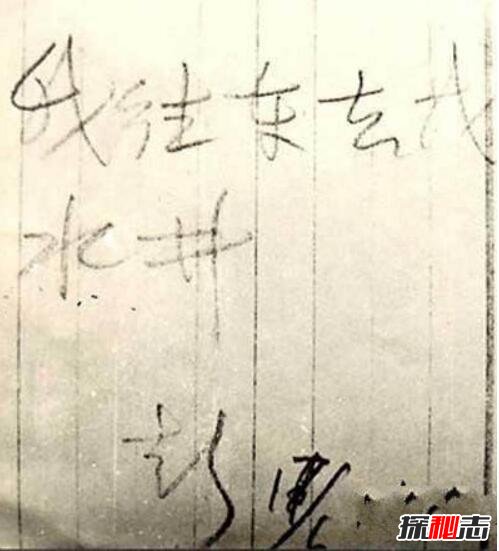 我往东去找
水井
彭
探秘志